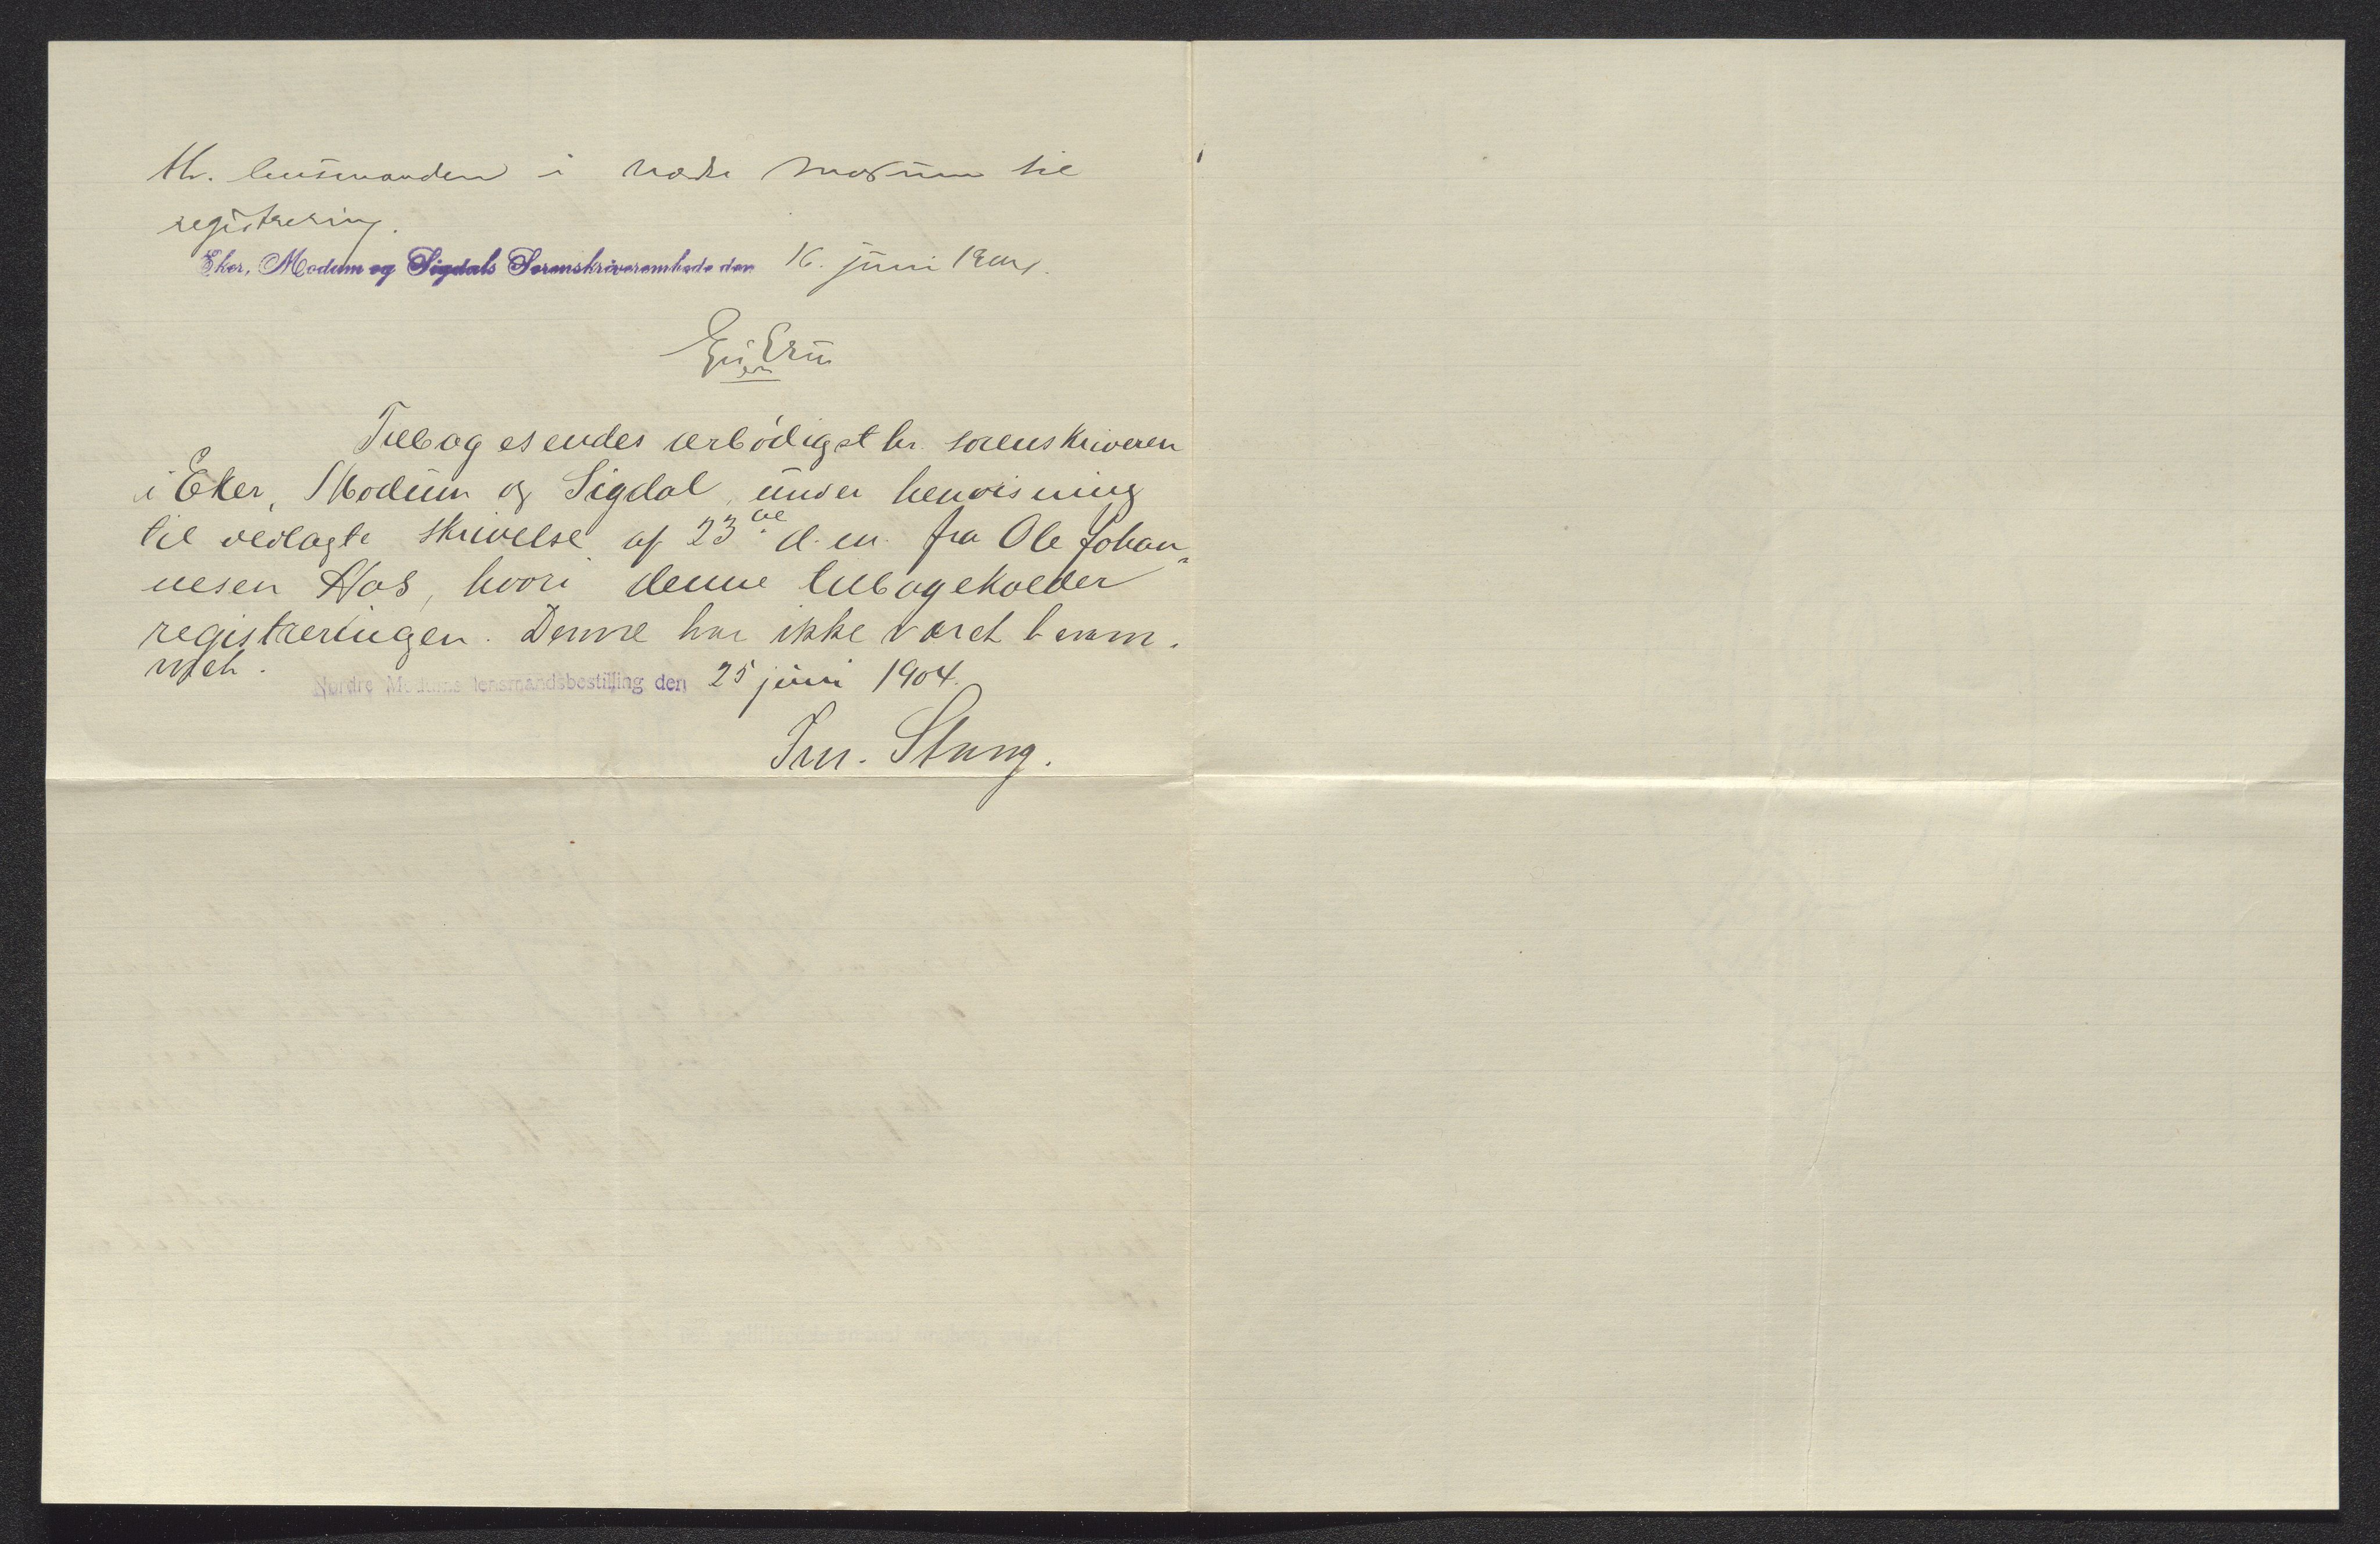 Hr. lensmanden i nordre Modum til
registrering.
Eker, Modum og Sigdals Sorenskriverembede den 16. juni 1904.
Tilbagesendes ærbødigst hr. sorenskriveren
i Eker, Modum og Sigdal under henvisning
til vedlagte skrivelse af 23de d. m. fra Ole Johan-
nesen Aas, hvori denne tilbagekalder
registreringen. Denne har ikke været beram-
met.
Nordre Modums lensmandsbestilling den 25 juni 1904.
Stang.